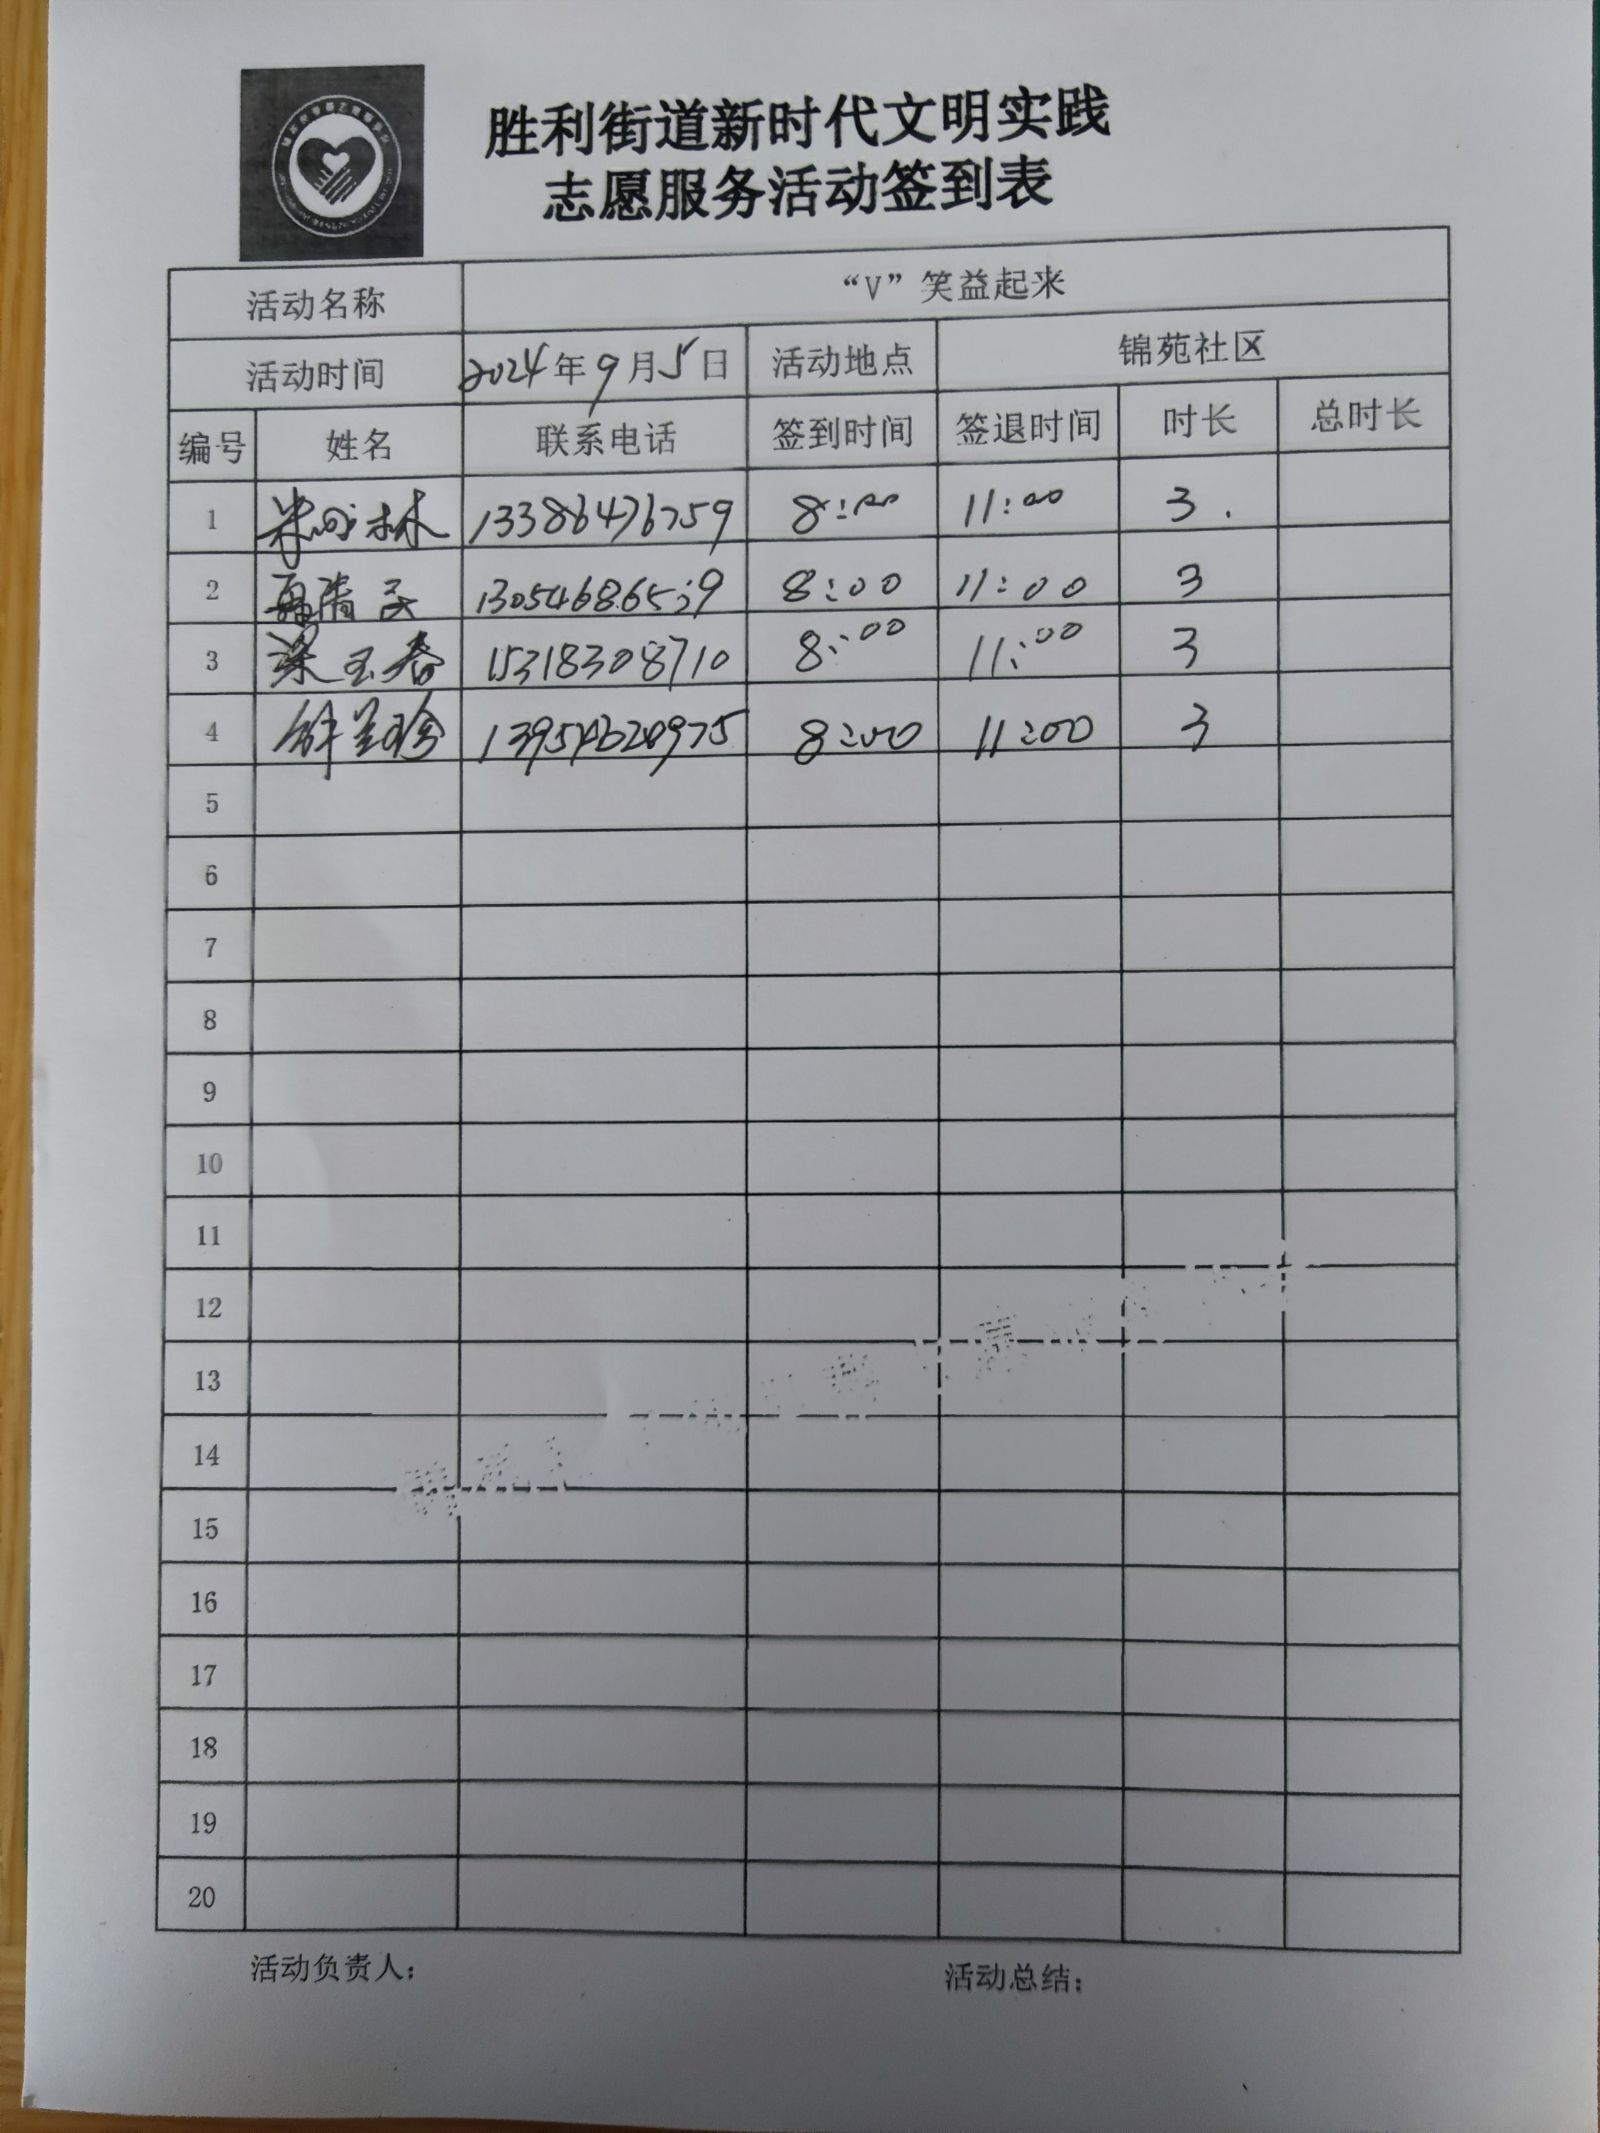 胜利街道新时代文明实践
志愿服务活动签到表
活动名称 “V”笑益起来
活动时间 2024年9月5日 活动地点 锦苑社区
编号 姓名 联系电话 签到时间 签退时间 时长 总时长
1 林 13386476759 8:00 11:00 3.
2 清 8:00 11:00 3
3 梁玉春 15318308710 8:00 11:00 3
4 兰珍 8:00 11:00 3
5
6
7
8
9
10
11
12
13
14
15
16
17
18
19
20
活动负责人： 活动总结：